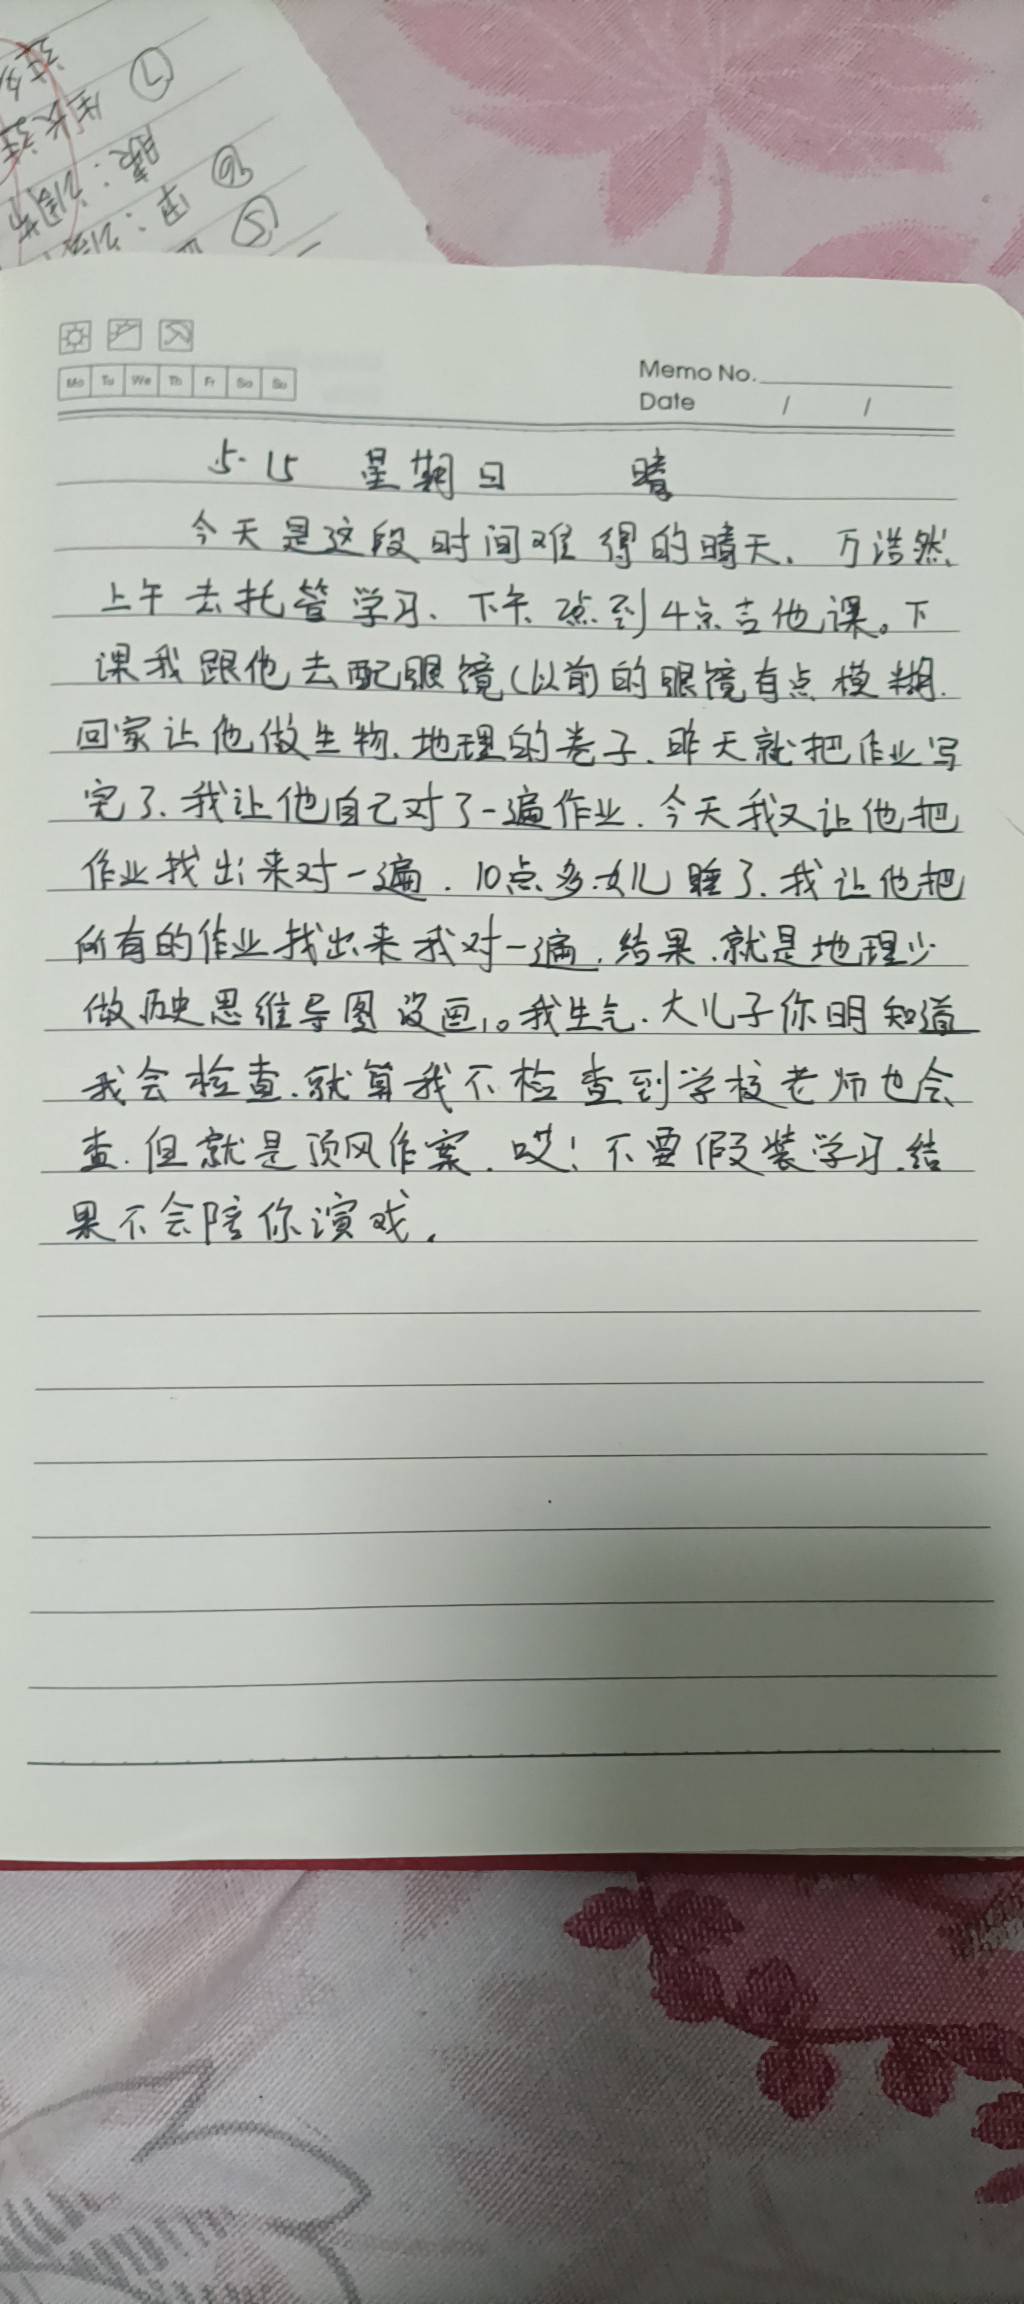 Mo Tu We Th Fr Sa Su
Memo No.
Date / /
5.15 星期日 晴
今天是这段时间难得的晴天.万浩然
上午去托管学习、下午2点到4点吉他课。下
课我跟他去配眼镜(以前的眼镜有点模糊.
回家让他做生物、地理的卷子.昨天就把作业写
完了.我让他自己对了一遍作业.今天我又让他把
作业找出来对一遍.10点多女儿睡了.我让他把
所有的作业找出来我对一遍.结果.就是地理少
做历史思维导图没画。我生气.大儿子你明知道
我会检查.就算我不检查到学校老师也会
查.但就是顶风作案.哎!不要假装学习.结
果不会陪你演戏.
⑦
⑥
⑤